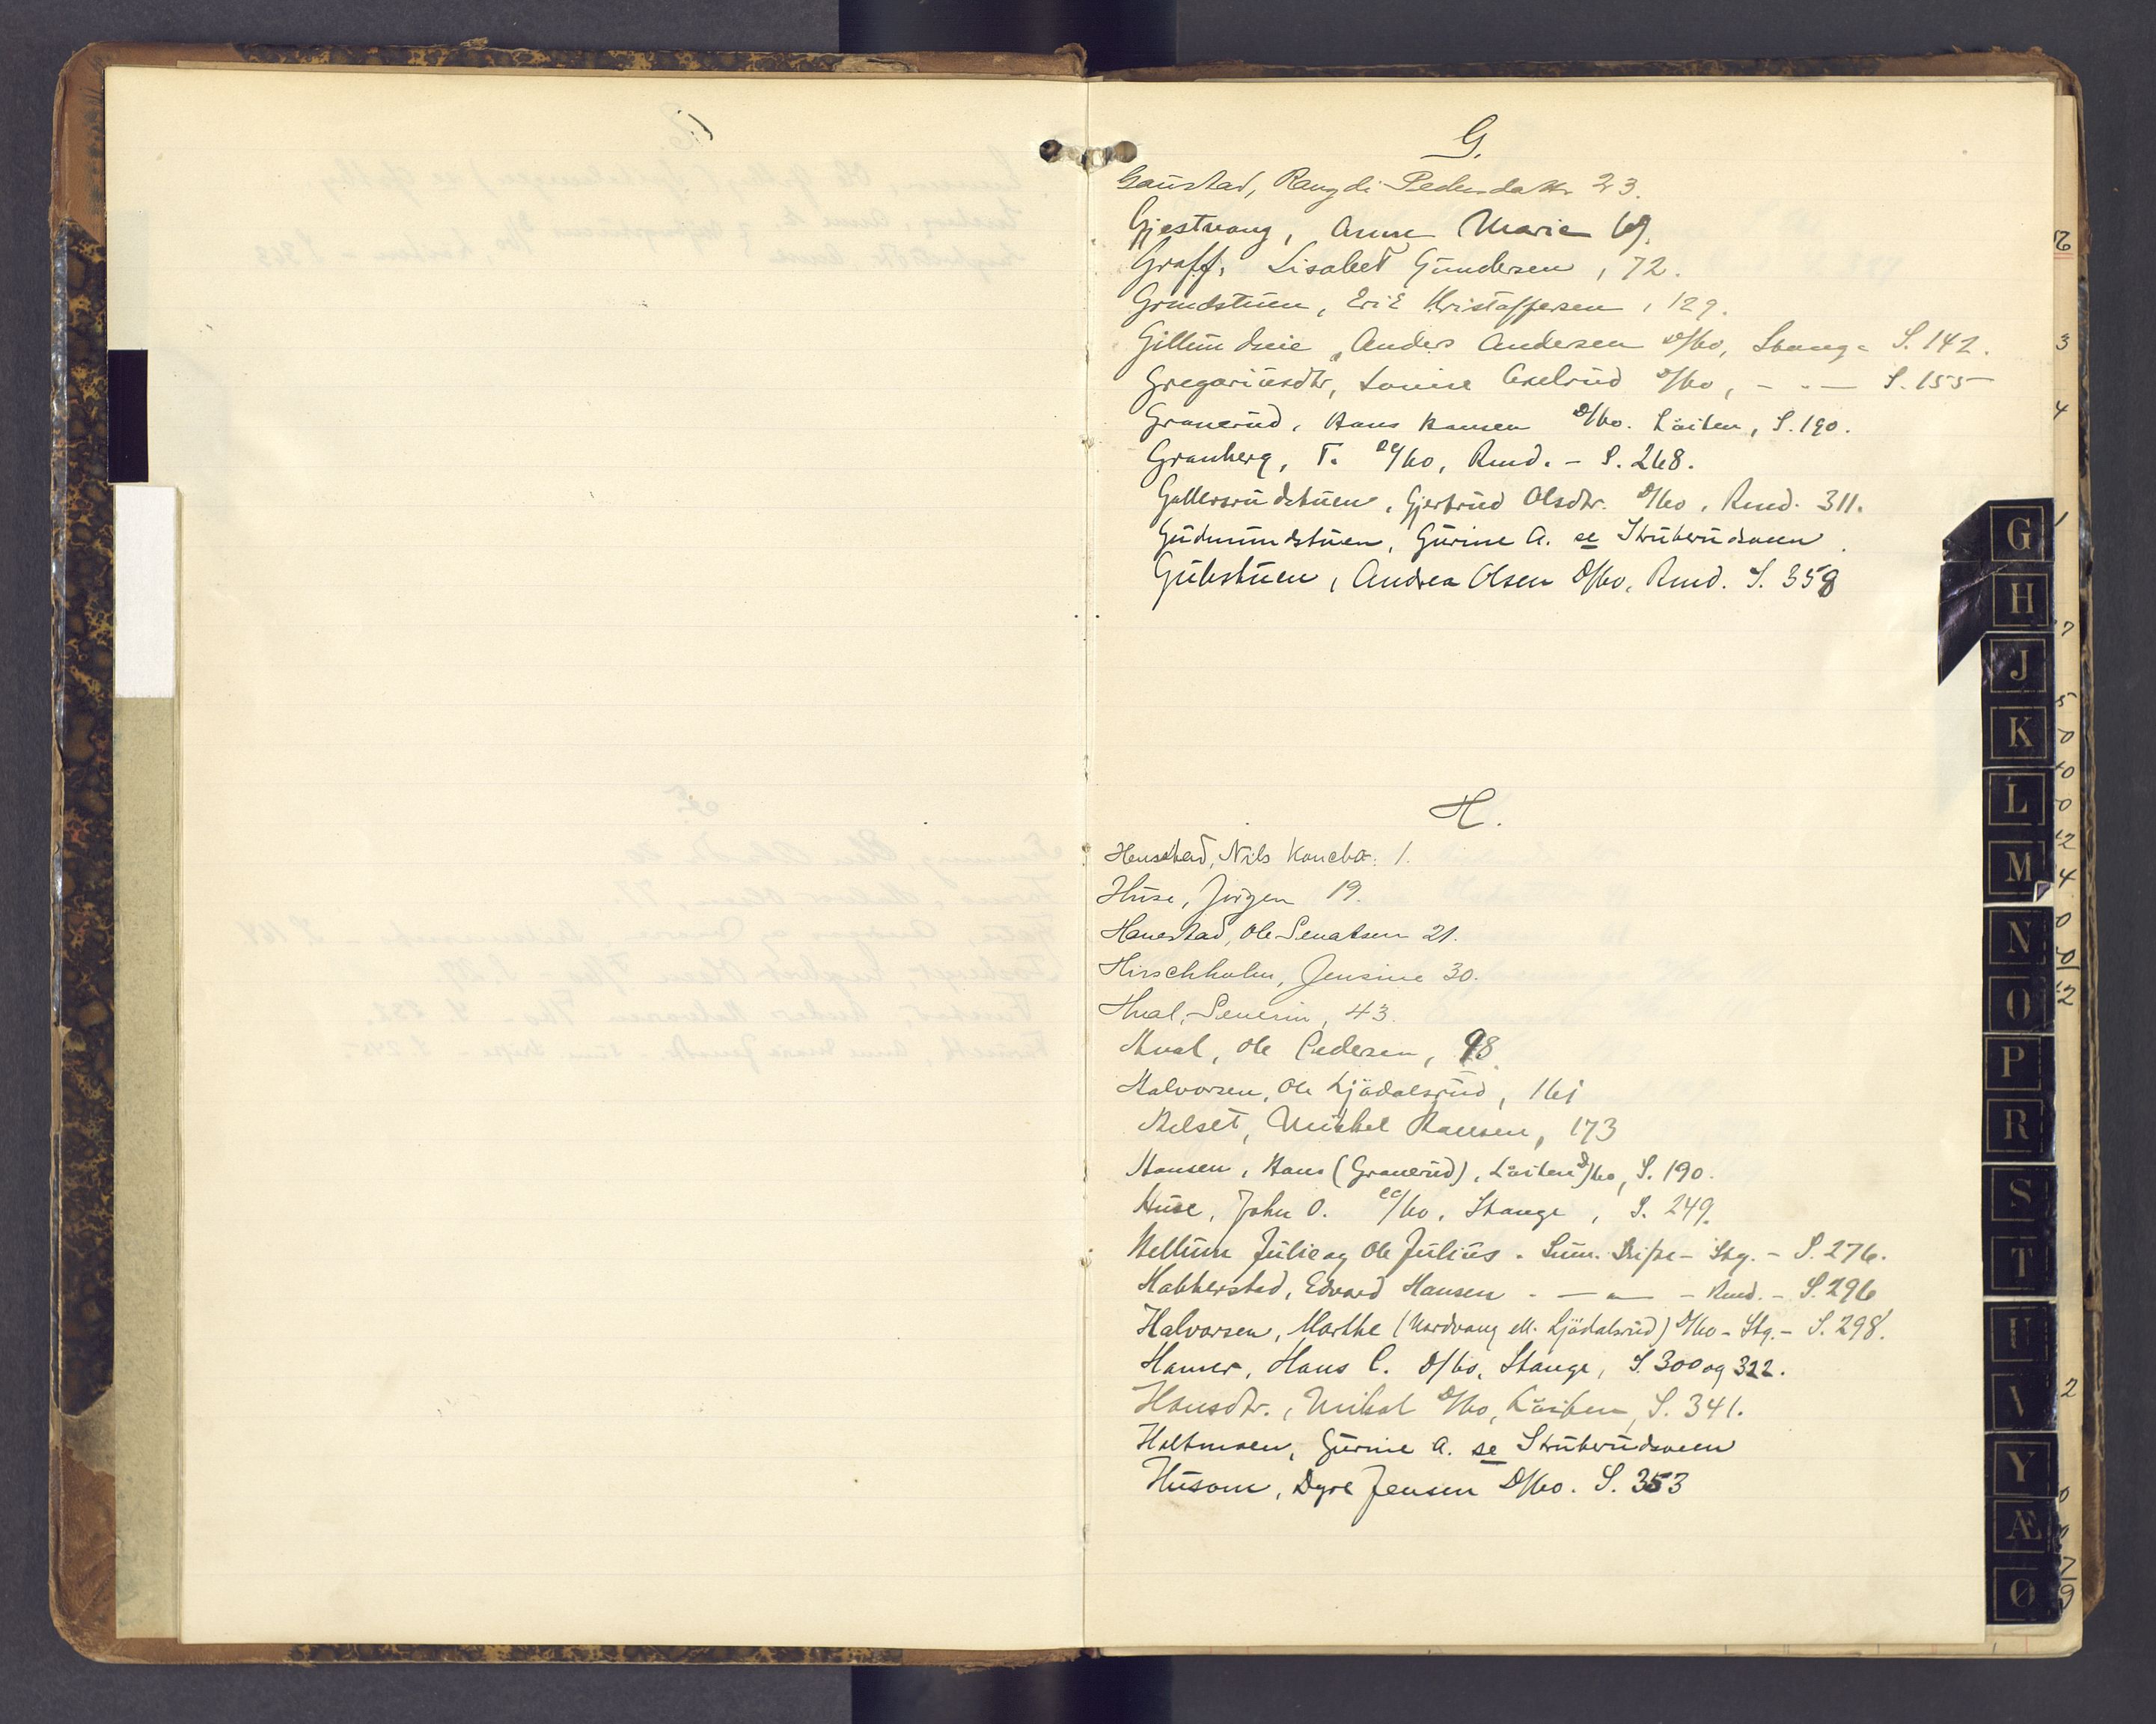 G.
Gaustad, Rangdi Pedersdatter 23.
Gjestvang, Anne Marie 69.
Graff, Lisabet Gundersen, 72.
Grundstuen, Erik Kristoffersen, 129.
Gillundseie, Anders Andersen D/bo, Stange S. 142.
Gregoriusdtr, Lovise Axelrud D/bo, - " - S. 155
Granerud, Hans Hansen D/bo. Löiten, S. 190.
Granberg, T. bo, Rmd. - S. 268.
Gallersrudstuen, Gjertrud Olsdtr. D/bo, Rmd. 311.
Gudmundstuen, Gurine A. se Struberudsveen.
Gubstuen, Andrea Olsen D/bo, Rmd. S. 358
H.
Nils 1.
Huse, Jörgen 19.
Hanestad, Ole 21.
Hirschholm, Jensine 30.
Hval, Severin, 43.
Hval, Ole Pedersen, 98.
Halvorsen, Ole Ljödalsrud, 161
Helset, Mikkel Hansen, 173
Hansen, Hans (Granerud), Löiten D/bo, S. 190.
Huse, John O. bo, Stange, S. 249.
Hellum Julie og Ole Julius. Sum. Skifte - Stg. - S. 276.
Habberstad, Edvard Hansen - — " — - Rmd. - S. 296
Halvorsen, Marthe (Nordvang ell. Ljödalsrud) D/bo - Stg. - S. 298.
Hamer, Hans C. D/bo, Stange, S. 300 og 322.
Hansdtr., Mikal D/bo, Löiten, S. 341.
Holtmoen, Gurine A. se Struberudsveen
Husom, Dyre Jensen D/bo. S. 353
G
H
J
K
L
M
N
O
P
R
S
T
U
V
Y
Æ
Ø